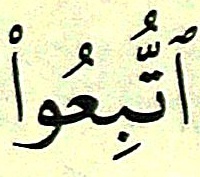 ٱتُّبِعُوا۟